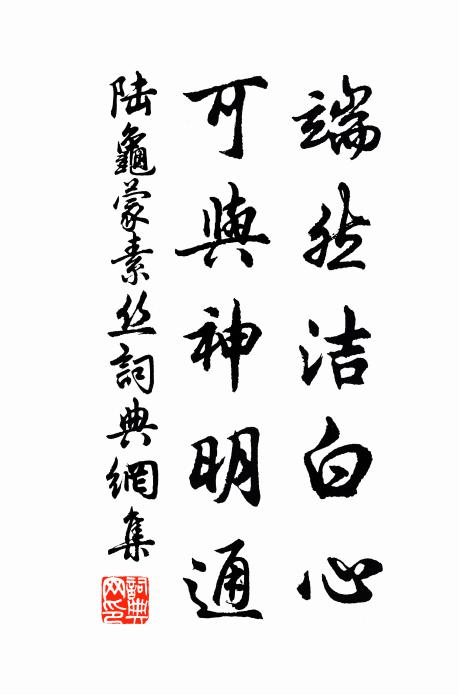 端然洁白心
可與神明通
陆龜蒙素丝詞典網集
詞典网印